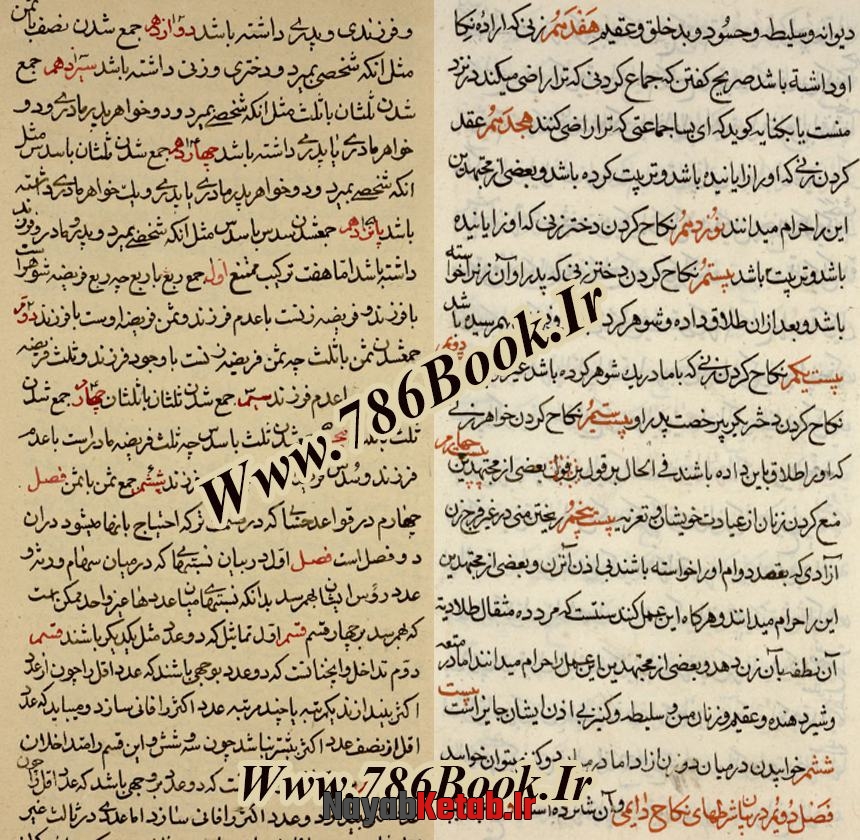 دیوانه و سلیطه و حسود و بدخلق و عقیم هفدهم زنی که اراده نکاح
او داشته باشد صریح گفتن که جماع کردنی که ترا راضی میکند در نزد
منست یا بکنایه گوید که ای بسا جماعتی که ترا راضی کنند هجدهم عقد
کردن زنی که او را زایانیده باشد و تربیت کرده باشد و بعضی از مجتهدین
این را حرام میدانند نوزدهم نکاح کردن دختر زنی که او را زایانیده
باشد و تربیت باشد بیستم نکاح کردن دختر زنی که پدر او آن زنرا خواسته
باشد و بعد ازان طلاق داده و شوهر کرده رسیده باشد
بیست یکم نکاح کردن زنی که با مادر یک شوهر کرده باشد غیر دویم
نکاح کردن دختر بکر بی رخصت پدر او بیست سیم نکاح کردن خواهر زنی
که او را طلاق باین داده باشند فی الحال بر قول بعضی از مجتهدین بیست چهارم
منع کردن زنان از عیادت خویشان و تعزیه بیست پنجم ریختن منی در غیر فرج زن
آزادی که بقصد دوام او را خواسته باشد بی اذن آن زن و بعضی از مجتهدین
این را حرام میدانند و هر گاه این عمل کند سنتست که مرد ده مثقال طلا دیه
آن نطفه بآن زن دهد و بعضی از مجتهدین این عمل را حرام میدانند اما در متعه
و شیر دهنده و عقیم و زنان مسن و سلیطه و کنیز بی اذن ایشان جایز است بیست
ششم خوابیدن در میان دو زن آزاد اما در میان دو کنیز میتوان خوابید
فصل دوم در بیان شرطهای نکاح دایمی و آن شانزده است
و فرزندی و پدری داشته باشد دوازدهم جمع شدن نصف با ثمن
مثل آنکه شخصی بمیرد و دختری و زنی داشته باشد سیزدهم جمع
شدن ثلثان با ثلث مثل آنکه شخصی بمیرد و دو خواهر پدر مادری و دو
خواهر مادری یا پدری داشته باشد چهاردهم جمع شدن ثلثان با سدس مثل
آنکه شخصی بمیرد و دو خواهر پدر مادری یا پدری و یک خواهر مادری داشته
باشد پانزدهم جمع شدن سدس با سدس مثل آنکه شخصی بمیرد و پدر و مادر و فرزند
داشته باشد اما هفت ترکیب ممتنع اول جمع ربع با ربع چه ربع فریضه شوهر است
با فرزند و فریضه زنست با عدم فرزند و ثمن فریضه اوست با فرزند دوم
جمع شدن ثمن با ثلث چه ثمن فریضه زنست با وجود فرزند و ثلث فریضه
با عدم فرزند سیم جمع شدن ثلثان با ثلثان چهارم جمع شدن
ثلث با شدن ثلث با سدس چه ثلث فریضه مادر است با عدم
فرزند و سدس فرزند ششم جمع ثمن با ثمن فصل
چهارم در قواعد حسابی که در قسمت ترکه احتیاج بانها میشود و دران
دو فصل است فصل اول در بیان نسبتهای که در میان سهام ورثه و
عدد رؤس ایشان بهم رسد بدانکه نسبتهای میان عددها غیر واحد ممکن است
که بهم رسد بر چهار قسم قسم اول تماثل که دو عدد مثل یکدیگر باشند قسم
دوم تداخل و اینچنانست که دو عدد بوجهی باشند که عدد اقل را چون از عدد
اکثر بیندازند یکمرتبه یا چند مرتبه عدد اکثر را فانی سازد و میباید که عدد
اقل از نصف عدد اکثر بیشتر نباشد چون سه و شش و این قسم را متداخلان
که دو عدد بوجهی باشد که عدد اقل را چون
و عدد اکثر را فانی سازد اما عددی ثالث غیر
Www.786Book.Ir
Www.786Book.Ir
NayabKetab.Ir